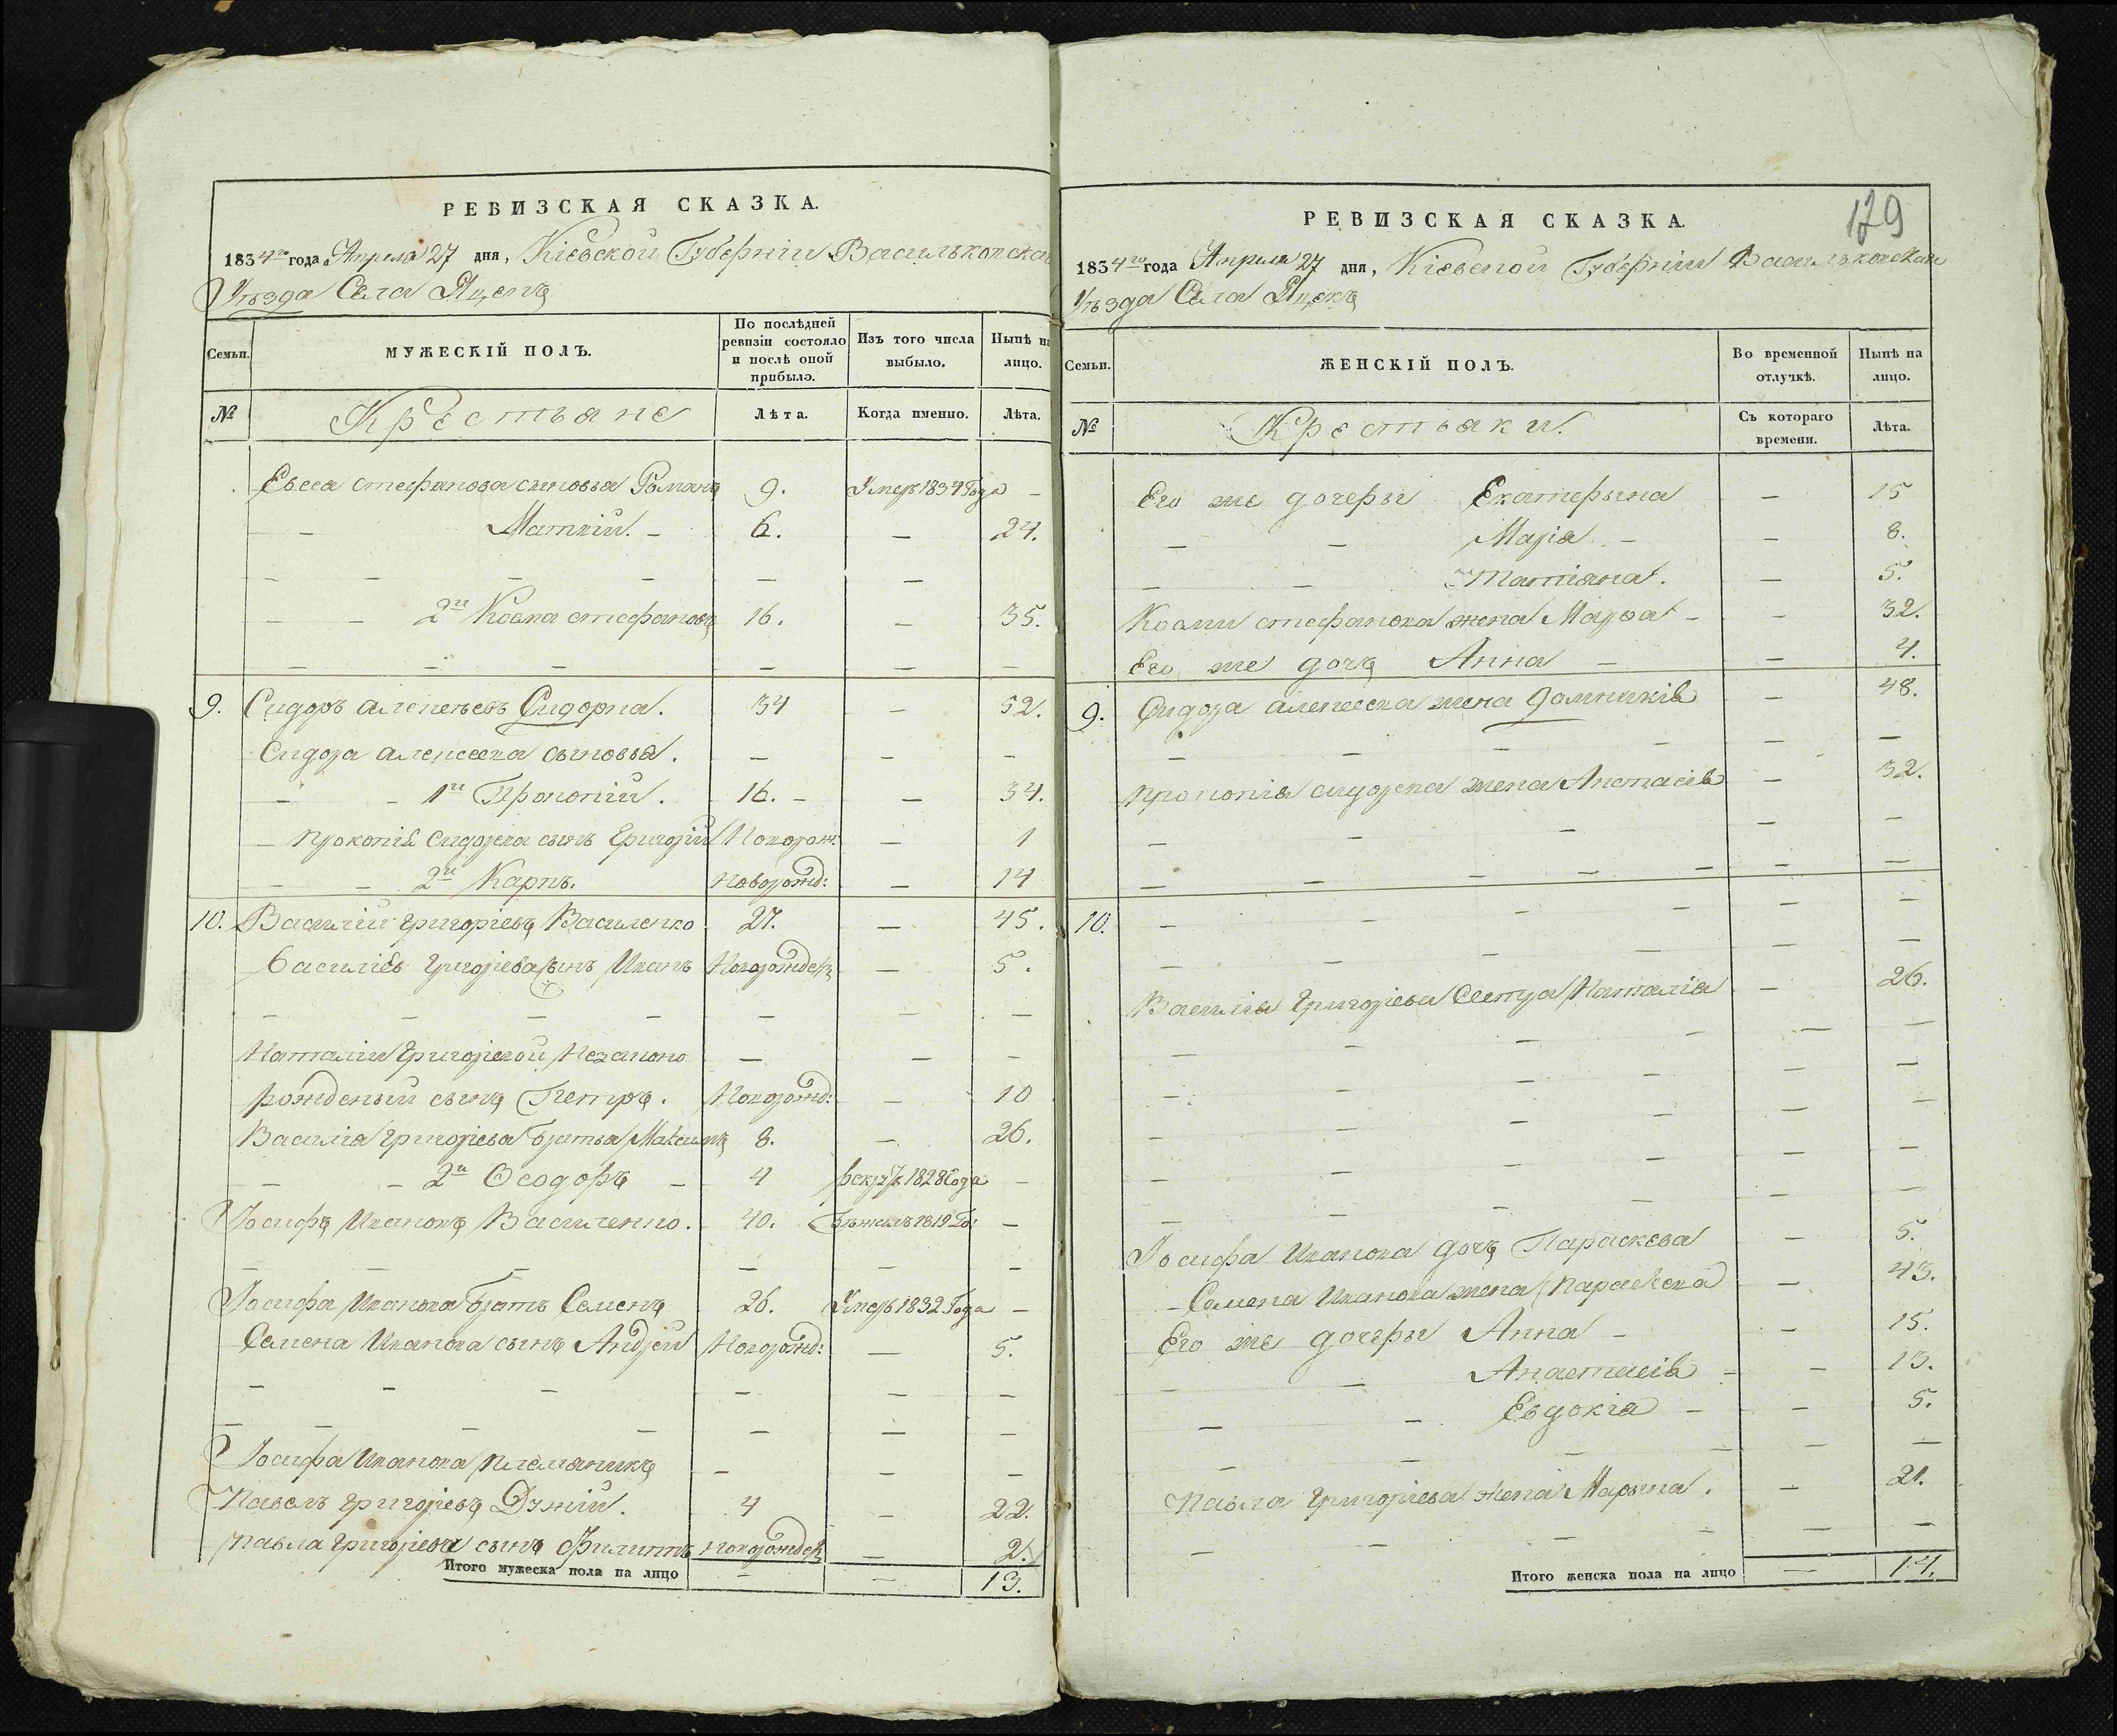 РЕВИЗСКАЯ СКАЗКА.
1834го года Апреля 27 дня, Кіевской Губерніи Васильковска
Уѣзда Села Яцекъ
Семьи.
МУЖЕСКІЙ ПОЛЪ.
По послѣдней ревизіи состояло и послѣ оной прибыло.
Изъ того числа выбыло.
Нынѣ на лицо.
№
Крестьяне
Лѣта.
Когда именно.
Лѣта.
Евсея стефанова сыновья Романъ 9. Умеръ 1834 Года –
– Маткій. – 6. – 24.
– – – – – –
– – 2й Косма стефановъ 16. – 35.
– – – – – –
9. Сидоръ алексеевъ Сидорка. 34 – 52.
Сидора алексеева сыновья. – – –
– – 1й Прокопій. 16. – – 34.
– Прокопія Сидорова сынъ Григорій Новорож: – 1
– – 2й Карпъ. Новорожд: – 14
10. Василій Григоріевъ Василенко 27. – 45.
Василія Григоріева сынъ Иванъ Новорожденъ – 5.
– – – – – – –
Наталіи Григоріевой Незаконо – – –
рожденый сынъ Петръ. Новорожд: – 10
Василія Григоріева братья Максимъ 8. – 26.
– – 2й Ѳеодоръ – 4 рекрутъ 1828 Года –
Іосифъ Ивановъ Василенко. 40. Бѣжалъ 1819 Го: –
– – – – – –
Іосифа Иванова братъ Семенъ 26. Умеръ 1832 Года –
Семена Иванова сынъ Андрей Новорожд: – 5.
– – – – – –
– – – – – – –
Іосифа Иванова племяникъ – – –
Павелъ Григоріевъ Дужій. 4 – 22.
Павла Григоріева сынъ Филиппъ новорожденъ – 2.
Итого мужеска пола на лицо – – 13.
129
РЕВИЗСКАЯ СКАЗКА
1834го года Апреля 27 дня, Кіевской Губерніи Васильковскаи
Уѣзда Села Яцекъ
Семьи.
ЖЕНСКІЙ ПОЛЪ.
Во временной отлучкѣ.
Нынѣ на лицо.
№
Крестьяки.
Съ котораго времени.
Лѣта.
Его же дочеры Екатерына – 15
– – Марія – – 8.
– – Татіяна. – 5.
Космы стефанова жена Марѳа – – 32.
Его же дочъ Анна – – 4.
9. Сидора алексеева жена Домникія – 48.
– – – – – –
Прокопія сидорова жена Анастасія – 32.
– – – – –
– – – – – – –
10. – – – – – –
– – – – – –
Василія Григоріева Сестра Наталія – 26.
– – – – – –
– – – – –
– – – – –
– – – – –
– – – – –
Іосифа Иванова дочъ Параскева – 5.
– Семена Иванова жена Параскева – 43.
Его же дочеры Анна – – 15.
– – Анастасія – – 13.
– – Евдокія – – 5.
– – – – – –
Павла Григоріева жена Марына. – 21.
– – – – – –
Итого женска пола на лицо – 14.